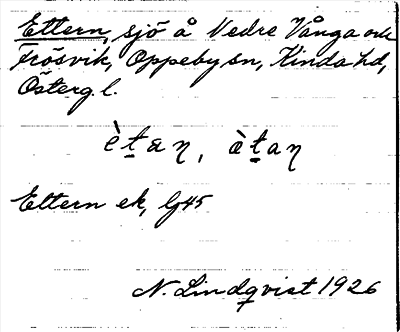 Ettern, sjö å Nedre Vånga och
Frösvik, Oppeby sn, Kinda hd,
Österg. l.
èt̠aη, àt̠aη
Ettern ek, Gj45
N. Lindqvist 1926